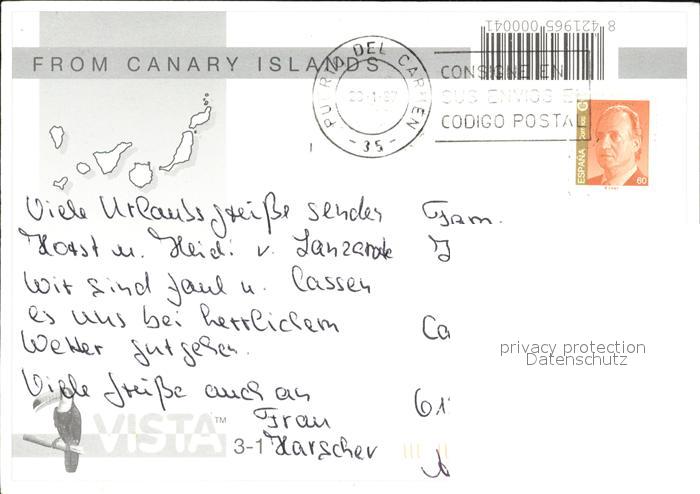 8 421965 000041
FROM CANARY ISLANDS
PUERTO DEL CARMEN
-35-
CONSIGNE EN
SUS ENVIOS EL
CODIGO POSTAL
ESPAÑA Correos
60
Viele Urlaubsgrüße senden
Horst u. Heidi v. Lanzarote
Wir sind faul u. lassen
es uns bei herrlichem
Wetter gutgehen.
Viele Grüße auch an
Frau
Harscher
Fam.
Ca
61
privacy protection
Datenschutz
VISTA™
3-1